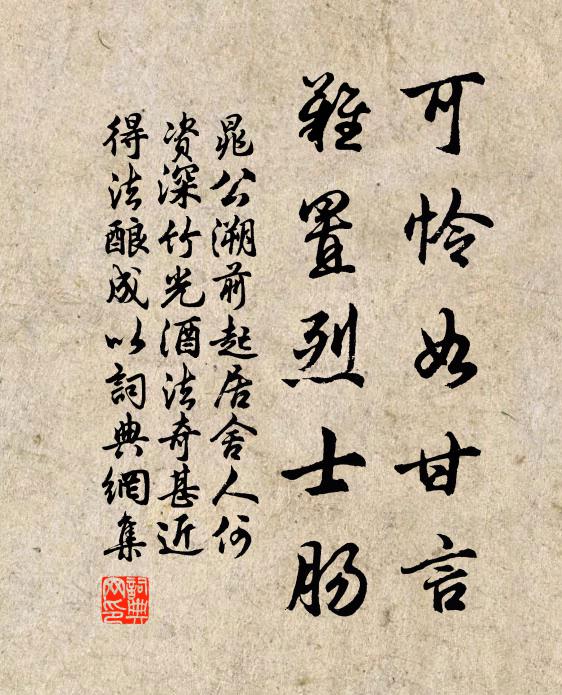 可怜如甘言
難置烈士肠
晁公溯前起居舍人何
资深竹光酒法奇甚近
得法酿成以詞典網集
詞典网印